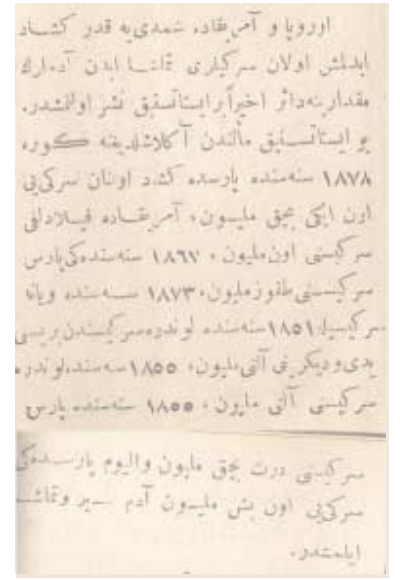 اوروپا و آمریقاده شمدی‌یه قدر كشاد
ایدلمش اولان سركیلری تماشا ایدن آدملرك
مقدارینه‌دائر اخیراً ایستاتستیق نشر اولنمشدر.
بو ایستاتستیق مآلندن آكلاشلدیغنه كوره
۱۸۷۸ سنه‌سنده پارسده كشاد اولنان سركی‌یی
اون ایكی بچق ملیون، آمریقاده فیلادلفی
سركیسنی اون‌ملیون، ۱۸۶۷ سنه‌سنده‌كی‌پارس
سركیسنی‌طقوزملیون، ۱۸۷۳ سنه‌سنده ویانه
سركیسیله ۱۸۵۱ سنه‌سنده لوندره‌سركیسندن‌بریسی
یدی‌ودیكرینی آلتی‌ملیون، ۱۸۵۵ سنه‌سنده‌لوندره
سركیسنی آلتی ملیون، ۱۸۵۵ سنه‌سنده پارس
سركیسنی درت بچق ملیون والیوم پارسده‌كی
سركی‌یی اون بش ملیون آدم سیر وتماشا
ایلمشدر.